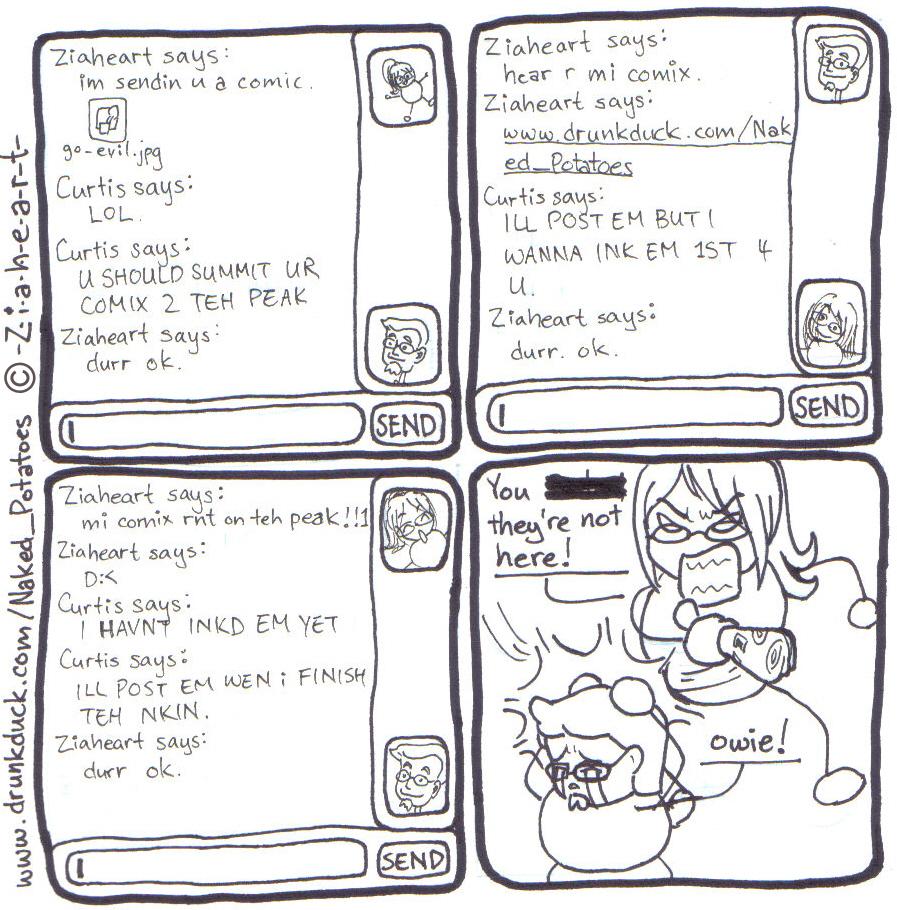 Ziaheart says:
im sendin u a comic.
go-evil.jpg
Curtis says:
LOL.
Curtis says:
U SHOULD SUMMIT UR
COMIX 2 TEH PEAK
Ziaheart says:
durr ok.
SEND
Ziaheart says:
hear r mi comix.
Ziaheart says:
www.drunkduck.com/Nak
ed_Potatoes
Curtis says:
ILL POST EM BUT I
WANNA INK EM 1ST 4
U.
Ziaheart says:
durr. ok.
SEND
Ziaheart says:
mi comix rnt on teh peak!!1
Ziaheart says:
D:<
Curtis says:
I HAVNT INKD EM YET
Curtis says:
ILL POST EM WEN i FINISH
TEH NKIN.
Ziaheart says:
durr ok.
SEND
You
they're not
here!
owie!
www.drunkduck.com/Naked_Potatoes © -Z-i-a-h-e-a-r-t-